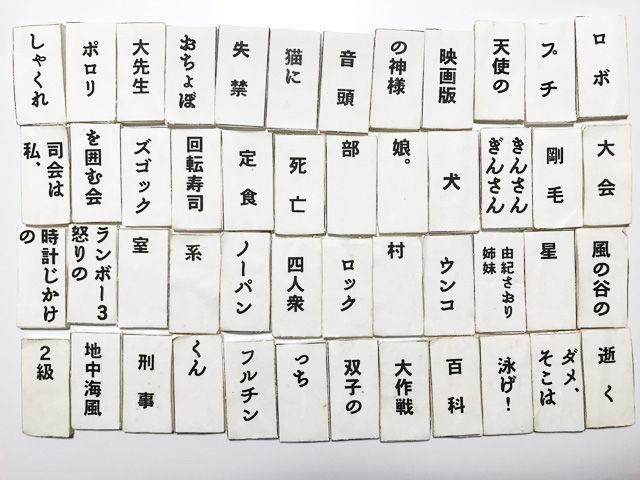 ロボ
プチ
天使の
映画版
の神様
音頭
猫に
失禁
おちょぼ
大先生
ポロリ
しゃくれ
大会
剛毛
きんさん
ぎんさん
犬
娘。
部
死亡
定食
回転寿司
ズゴック
を囲む会
司会は
私、
風の谷の
星
由紀さおり
姉妹
ウンコ
村
ロック
四人衆
ノーパン
系
室
ランボー3
怒りの
時計じかけ
の
逝く
ダメ、
そこは
泳げ!
百科
大作戦
双子の
っち
フルチン
くん
刑事
地中海風
2級